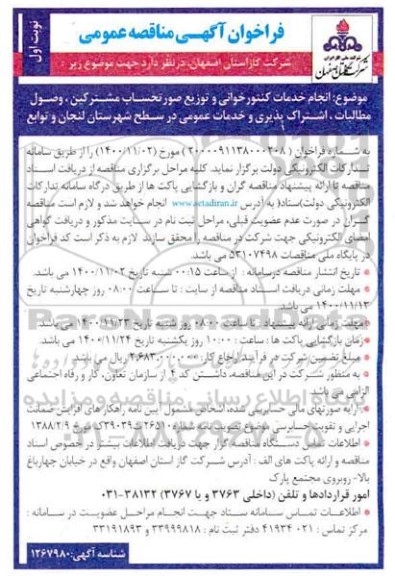 نوبت اول
فراخوان آگهی مناقصه عمومی
شرکت گاز استان اصفهان، درنظر دارد جهت موضوع زیر
موضوع: انجام خدمات کنتورخوانی و توزیع صورتحساب مشترکین ، وصول
مطالبات ، اشتراک پذیری و خدمات عمومی در سطح شهرستان لنجان و توابع
به شماره فراخوان ( ۲۰۰۰۰۹۱۱۳۸۰۰۰۲۰۸ ) مورخ (۱۴۰۰/۱۱/۰۲) را از طریق سامانه
تدارکات الکترونیکی دولت برگزار نماید. کلیه مراحل برگزاری مناقصه از دریافت اسناد
مناقصه تا ارائه پیشنهاد مناقصه گران و بازگشایی پاکت ها از طریق درگاه سامانه تدارکات
الکترونیکی دولت(ستاد) به آدرس www.setadiran.ir انجام خواهد شد و لازم است مناقصه
گران در صورت عدم عضویت قبلی، مراحل ثبت نام در سایت مذکور و دریافت گواهی
امضای الکترونیکی جهت شرکت در مناقصه را محقق سازند. لازم به ذکر است کد فراخوان
در پایگاه ملی مناقصات ۵۳۱۰۷۴۹۸ می باشد.
* تاریخ انتشار مناقصه در سامانه : از ساعت ۰۰:۱۵ شنبه تاریخ ۱۴۰۰/۱۱/۰۲ می باشد.
* مهلت زمانی دریافت اسناد مناقصه از سایت : تا ساعت ۰۸:۰۰ روز چهارشنبه تاریخ
۱۴۰۰/۱۱/۱۳ می باشد.
*مهلت زمانی ارائه پیشنهاد : تا ساعت ۰۸:۰۰ روز شنبه تاریخ ۱۴۰۰/۱۱/۲۳ می باشد.
* زمان بازگشایی پاکت ها : ساعت : ۱۰:۰۰ روز یکشنبه تاریخ ۱۴۰۰/۱۱/۲۴ می باشد.
* مبلغ تضمین شرکت در فرآیند ارجاع کار: ریال می باشد.
* به منظور شرکت در این مناقصه، داشتن کد ۴ از سازمان تعاون، کار و رفاه اجتماعی
الزامی می باشد.
* ارایه صورتهای مالی حسابرسی شده، اشخاص مشمول آیین نامه راهکار های افزایش ضمانت
اجرایی و تقویت حسابرسی موضوع تصویب نامه شماره مورخ ۱۳۸۸/۲/۹
* اطلاعات تماس دستگاه مناقصه گزار جهت دریافت اطلاعات بیشتر در خصوص اسناد
مناقصه و ارائه پاکت های الف : آدرس شرکت گاز استان اصفهان واقع در خیابان چهارباغ
بالا- روبروی مجتمع پارک
امور قراردادها و تلفن (داخلی ۳۷۶۳ و یا ۳۷۶۷) ۳۸۱۳۲-۰۳۱
* اطلاعات تماس سامانه ستاد جهت انجام مراحل عضویت در سامانه :
مرکز تماس : ۰۲۱ ۴۱۹۳۴ دفتر ثبت نام : ۳۳۹۹۹۸۱۸ و ۳۳۱۹۱۸۹۳
شناسه آگهی: ۱۲۶۷۹۸۰